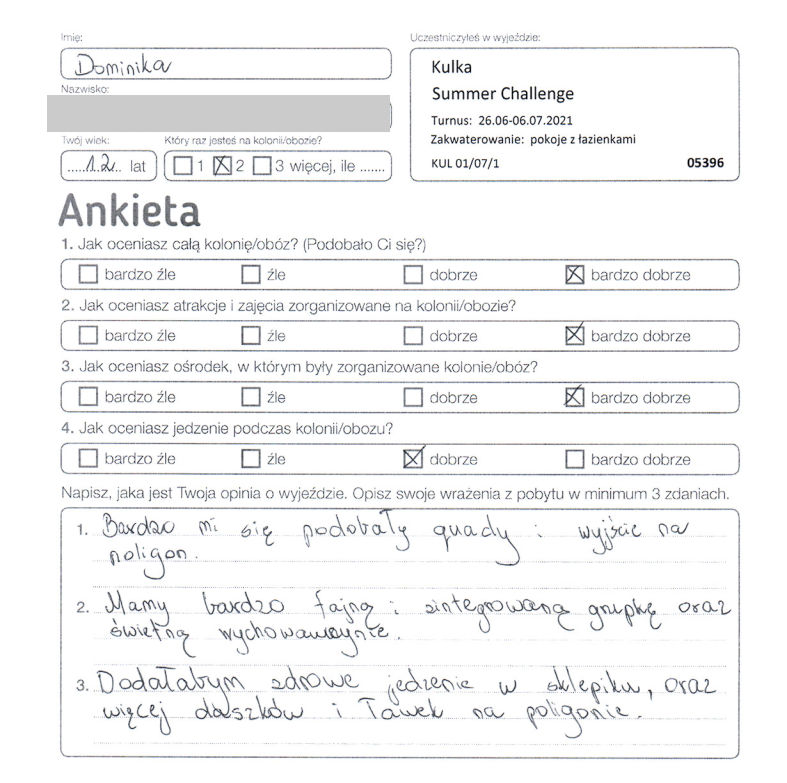 Imię:
Dominika
Nazwisko:
Twój wiek:
.....12.. lat
Który raz jesteś na kolonii/obozie?
1 2 3 więcej, ile .......
Uczestniczyłeś w wyjeździe:
Kulka
Summer Challenge
Turnus: 26.06-06.07.2021
Zakwaterowanie: pokoje z łazienkami
KUL 01/07/1 05396
Ankieta
1. Jak oceniasz całą kolonię/obóz? (Podobało Ci się?)
bardzo źle źle dobrze bardzo dobrze
2. Jak oceniasz atrakcje i zajęcia zorganizowane na kolonii/obozie?
bardzo źle źle dobrze bardzo dobrze
3. Jak oceniasz ośrodek, w którym były zorganizowane kolonie/obóz?
bardzo źle źle dobrze bardzo dobrze
4. Jak oceniasz jedzenie podczas kolonii/obozu?
bardzo źle źle dobrze bardzo dobrze
Napisz, jaka jest Twoja opinia o wyjeździe. Opisz swoje wrażenia z pobytu w minimum 3 zdaniach.
1. Bardzo mi się podobały quady i wyjście na
poligon.
2. Mamy bardzo fajną i zintegrowaną grupkę oraz
świetną wychowawczynie.
3. Dodałabym zdrowe jedzenie w sklepiku, oraz
więcej daszków i ławek na poligonie.